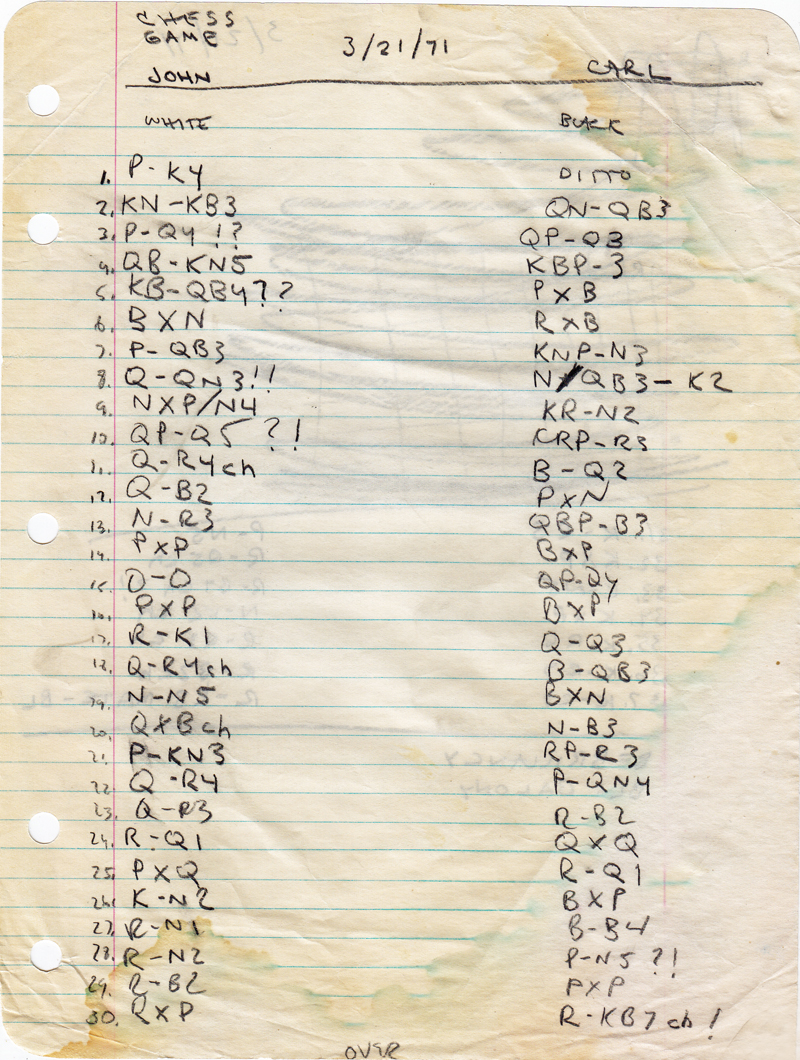 CHESS
GAME
3/21/71
JOHN CARL
WHITE BLACK
1. P-K4 DITTO
2. KN-KB3 QN-QB3
3. P-Q4 !? QP-Q3
4. QB-KN5 KBP-3
5. KB-QB4?? PXB
6. BXN RXB
7. P-QB3 KNP-N3
8. Q-QN3!! N/QB3-K2
9. NXP/N4 KR-N2
10. QP-Q5 ?! KRP-R3
11. Q-R4ch B-Q2
12. Q-B2 PXN
13. N-R3 QBP-B3
14. PXP BXP
15. O-O QP-Q4
16. PXP BXP
17. R-K1 Q-Q3
18. Q-R4ch B-QB3
19. N-N5 BXN
20. QXBch N-B3
21. P-KN3 RP-R3
22. Q-R4 P-QN4
23. Q-R3 R-B2
24. R-Q1 QXQ
25. PXQ R-Q1
26. K-N2 BXP
27. R-N1 B-B4
28. R-N2 P-N5?!
29. R-B2 PXP
30. RXP R-KB7ch!
OVER